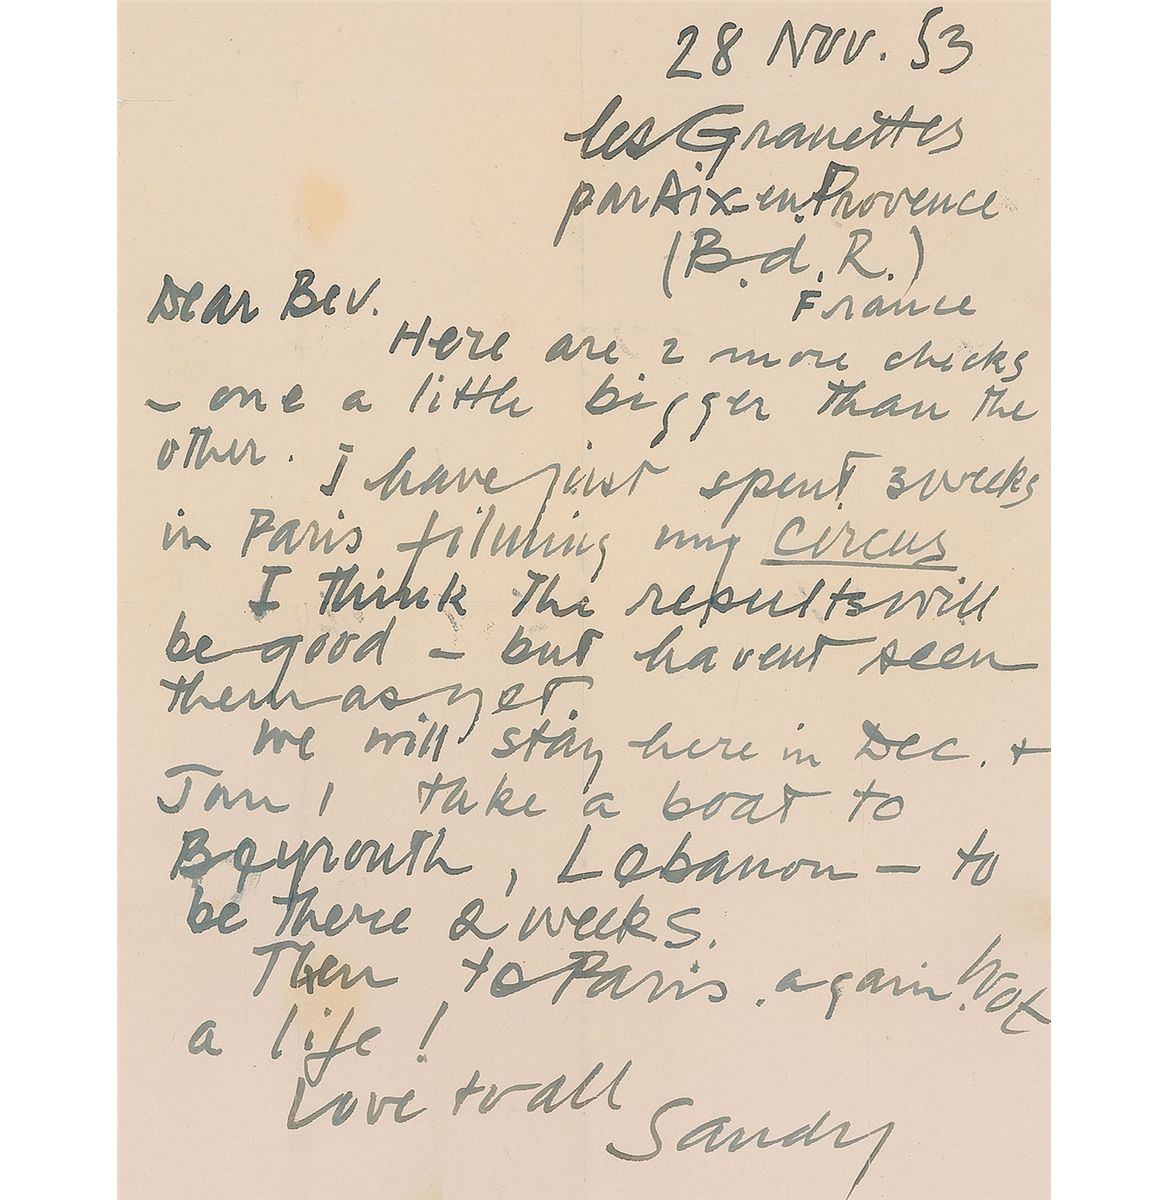 28 Nov. 53
les Granettes
par Aix-en-Provence
(B.d.R.)
France
Dear Bev.
Here are 2 more checks
- one a little bigger than the
other.
I have just spent 3 weeks
in Paris filming my circus
I think the results will
be good - but havent seen
them as yet
We will stay here in Dec. +
Jan, take a boat to
Beyrouth, Lebanon - to
be there 2 weeks.
Then to Paris again. Wot
a life!
Love to all
Sandy